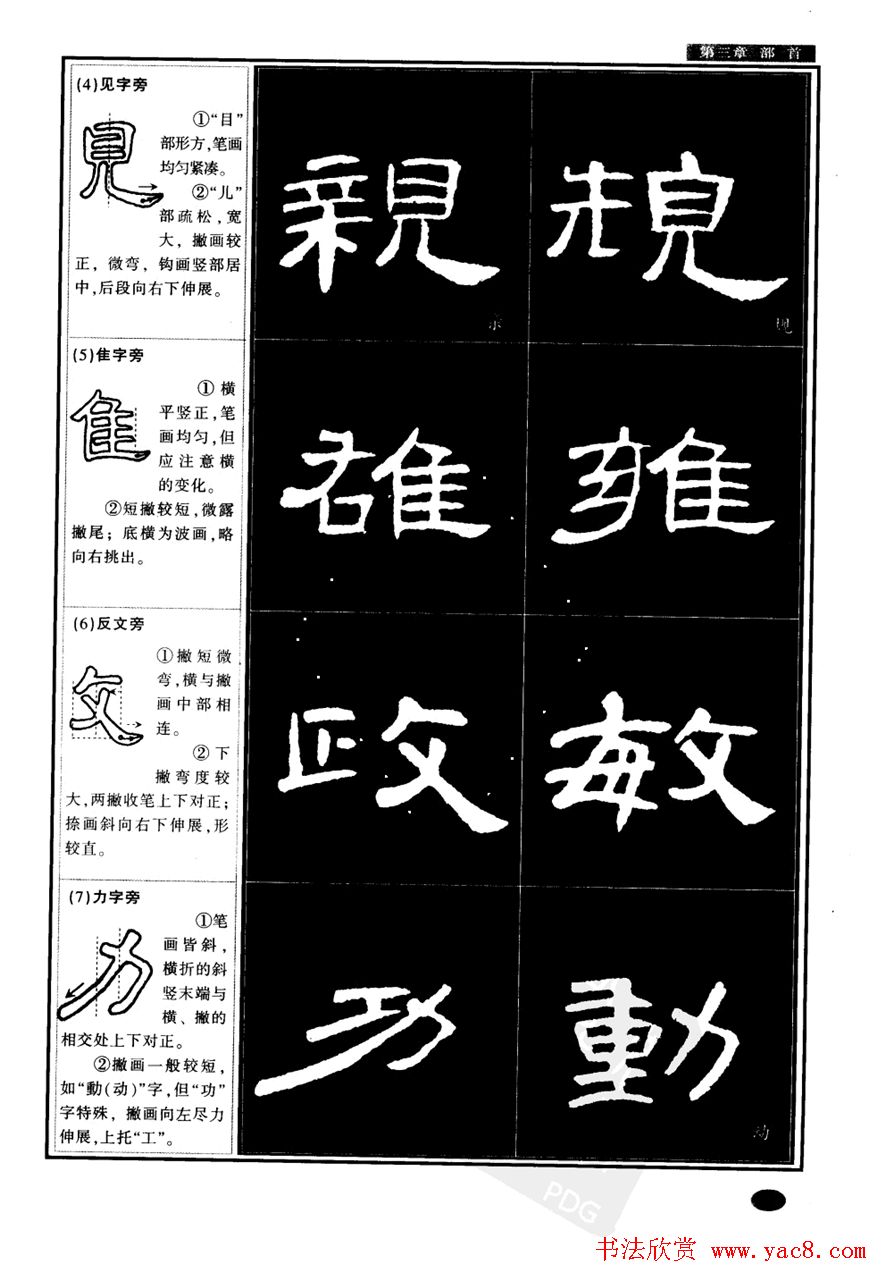 第三章 部 首
(4)见字旁
見
①“目”
部形方,笔画
均匀紧凑。
②“儿”
部疏松,宽
大,撇画较
正,微弯,钩画竖部居
中,后段向右下伸展。
親 規
(5)隹字旁
隹
①横
平竖正,笔
画均匀,但
应注意横
的变化。
②短撇较短,微露
撇尾;底横为波画,略
向右挑出。
雄 雍
(6)反文旁
攵
①撇短微
弯,横与撇
画中部相
连。
②下
撇弯度较
大,两撇收笔上下对正;
捺画斜向右下伸展,形
较直。
政 敏
(7)力字旁
力
①笔
画皆斜,
横折的斜
竖末端与
横、撇的
相交处上下对正。
②撇画一般较短,
如“動(动)”字,但“功”
字特殊,撇画向左尽力
伸展,上托“工”。
功 動
动
PDG
书法欣赏 www.yac8.com